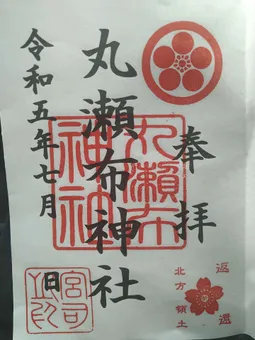 奉拝
丸瀬布神社
令和五年七月 日
丸瀬布
神社
返還
北方領土
宮司
之印